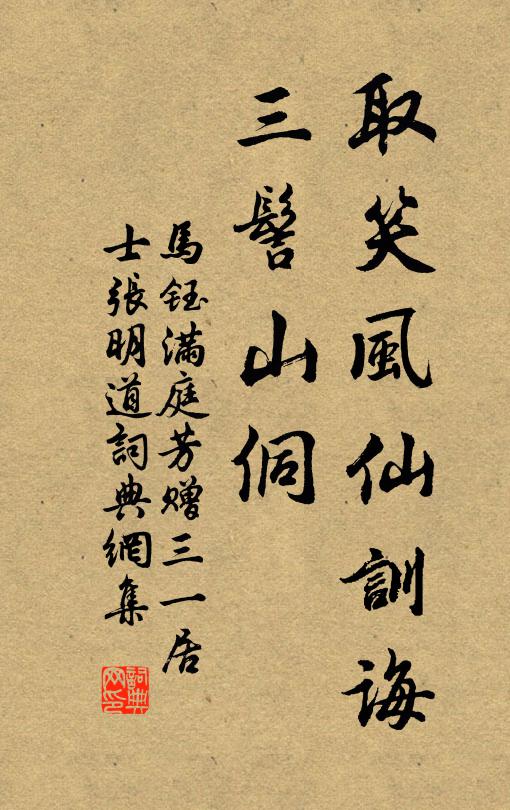 取笑風仙訓誨
三髻山侗
馬鈺滿庭芳贈三一居
士張明道詞典網集
詞典网印